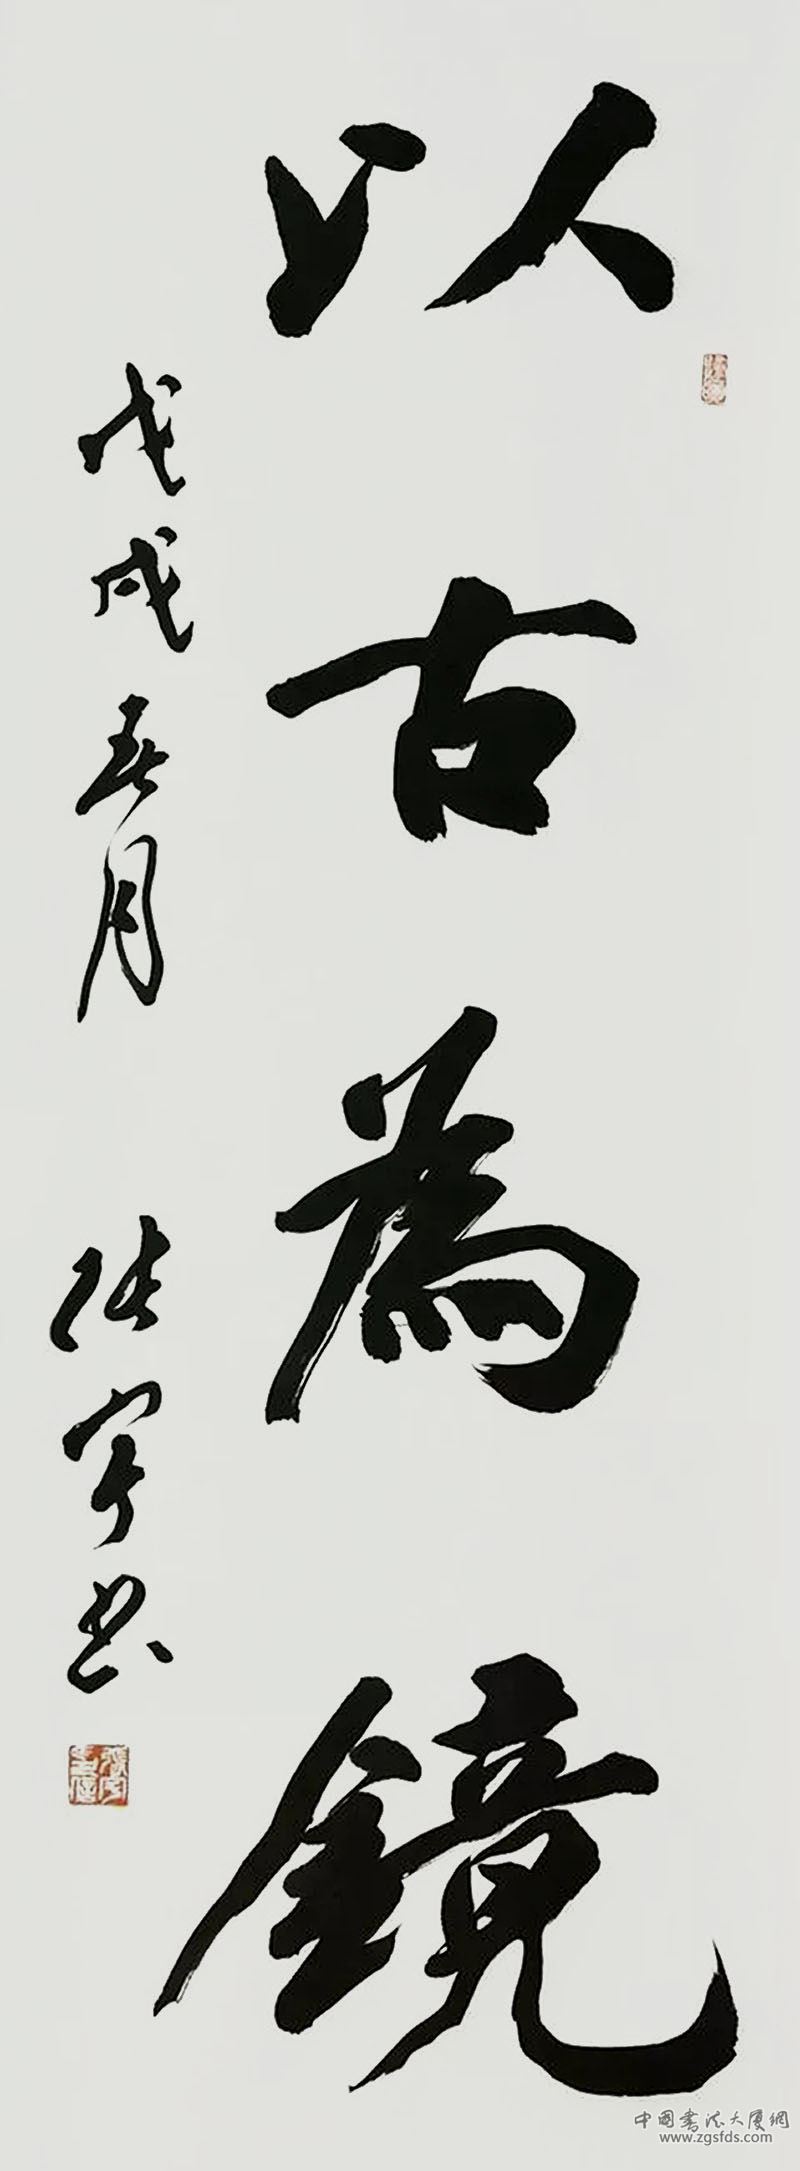 以古為鏡
戊戌春月 张宇书
中国书法大厦網
www.zgsfds.com